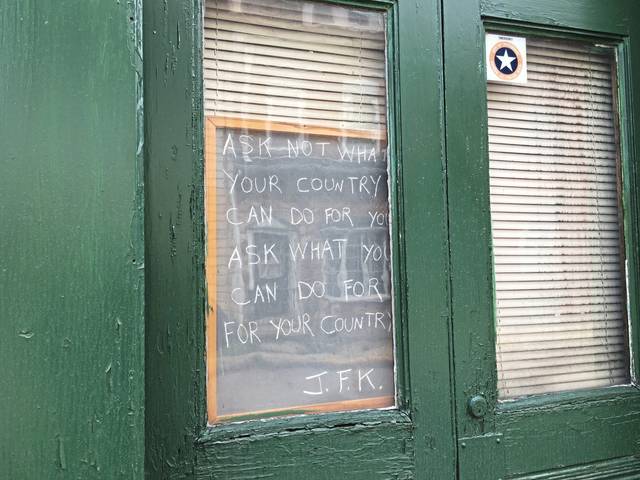 ASK NOT WHAT
YOUR COUNTRY
CAN DO FOR YO
ASK WHAT YOU
CAN DO FOR
FOR YOUR COUNTRY
J.F.K.